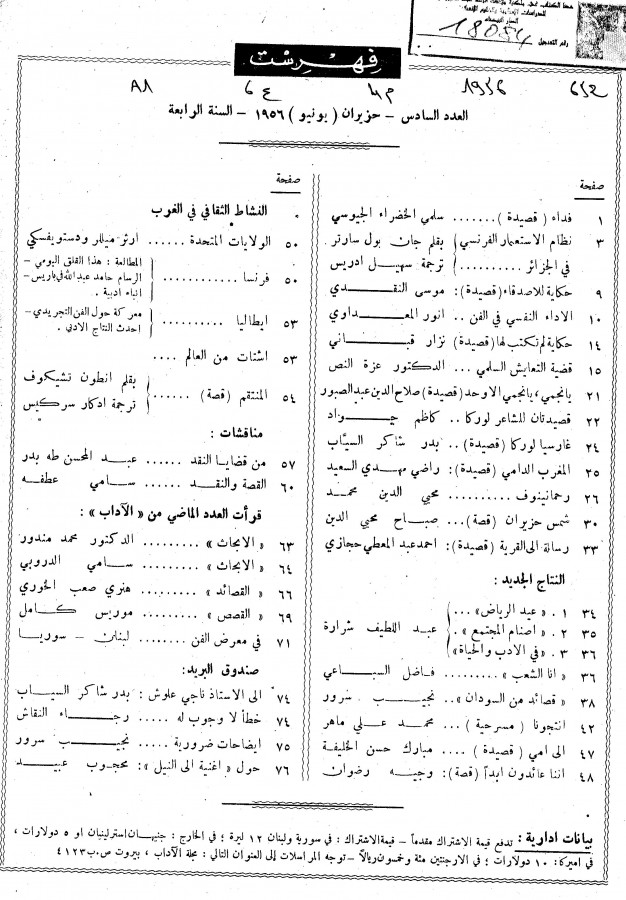 رقم التسجيل 18054
فهرست
A1 ع 6 م 4 1956 6/2
العدد السادس – حزيران ( يونيو ) ١٩٥٦ – السنة الرابعة
صفحة
١ فداء ( قصيدة ) ....... سلمى الخضراء الجيوسي
٣ نظام الاستعمار الفرنسي } بقلم جان بول سارتر
في الجزائر .......... } ترجمة سهيل ادريس
٩ حكاية للاصدقاء (قصيدة): موسى النقدي
١٠ الاداء النفسي في الفن .. انور المعداوي
١٤ حكاية لم تكتب لها (قصيدة) نزار قباني
١٥ قضية التعايش السلمي ... الدكتور عزة النص
٢١ يانجمي، يانجمي الاوحد (قصيدة) صلاح الدين عبد الصبور
٢٢ قصيدتان للشاعر لوركا .. كاظم جواد
٢٤ غارسيا لوركا (قصيدة) .. بدر شاكر السياب
٢٥ المغرب الدامي (قصيدة): راضي مهدي السعيد
٢٦ رحمانينوف .......... محيي الدين محمد
٣٠ شمس حزيران (قصة) ... صباح محيي الدين
٣٣ رسالة الى القرية (قصيدة): احمد عبد المعطي حجازي
النتاج الجديد :
٣٤ ١ . « عيد الرياض » ...
٣٥ ٢ . « اصنام المجتمع » . } عبد اللطيف شرارة
٣٦ ٣ . « في الادب والحياة »
٣٦ « انا الشعب » ......... فاضل السباعي
٣٨ « قصائد من السودان » .. نجيب سرور
٤٢ انتجونا ( مسرحية ) ... محمد علي ماهر
٤٧ الى امي ( قصيدة ) .... مبارك حسن الخليفة
٤٨ اننا عائدون ابداً (قصة): وجيه رضوان
صفحة
النشاط الثقافي في الغرب
٥٠ الولايات المتحدة ...... ارثر ميللر ودستويفسكي
٥٠ فرنسا ............. } المطالعة : هذا القلق اليومي –
الرسام حامد عبد الله في باريس –
انباء ادبية .
٥٣ ايطاليا .......... } معركة حول الفن التجريدي –
احدث النتاج الادبي .
٥٣ اشتات من العالم ....
٥٤ المنتقم ( قصة ) ...... } بقلم انطون تشيكوف
ترجمة ادكار سركيس
مناقشات :
٥٧ من قضايا النقد ...... عبد المحسن طه بدر
٦٠ القصة والنقد ....... سامي عطفه
قرأت العدد الماضي من « الآداب » :
٦٣ « الابحاث » ......... الدكتور محمد مندور
٦٤ « الابحاث » ......... سامي الدروبي
٦٦ « القصائد » ......... هنري صعب الخوري
٦٩ « القصص » ......... موريس كامل
٧١ في معرض الفن ........ لبنان – سوريا
صندوق البريد:
٧٤ الى الاستاذ ناجي علوش : بدر شاكر السياب
٧٤ خطأ لا وجوب له ..... رجاء النقاش
٧٥ ايضاحات ضرورية ..... نجيب سرور
٧٦ حول « اغنية الى النيل »: محجوب عبيد
بيانات ادارية : تدفع قيمة الاشتراك مقدماً – قيمة الاشتراك : في سورية ولبنان ١٢ ليرة ؛ في الخارج : جنيهان استرلينيان او ٥ دولارات ،
في اميركا : ١٠ دولارات ؛ في الارجنتين مئة وخمسون ريالاً – توجه المراسلات إلى العنوان التالي : مجلة الآداب ، بيروت ص.ب ٤١٢٣